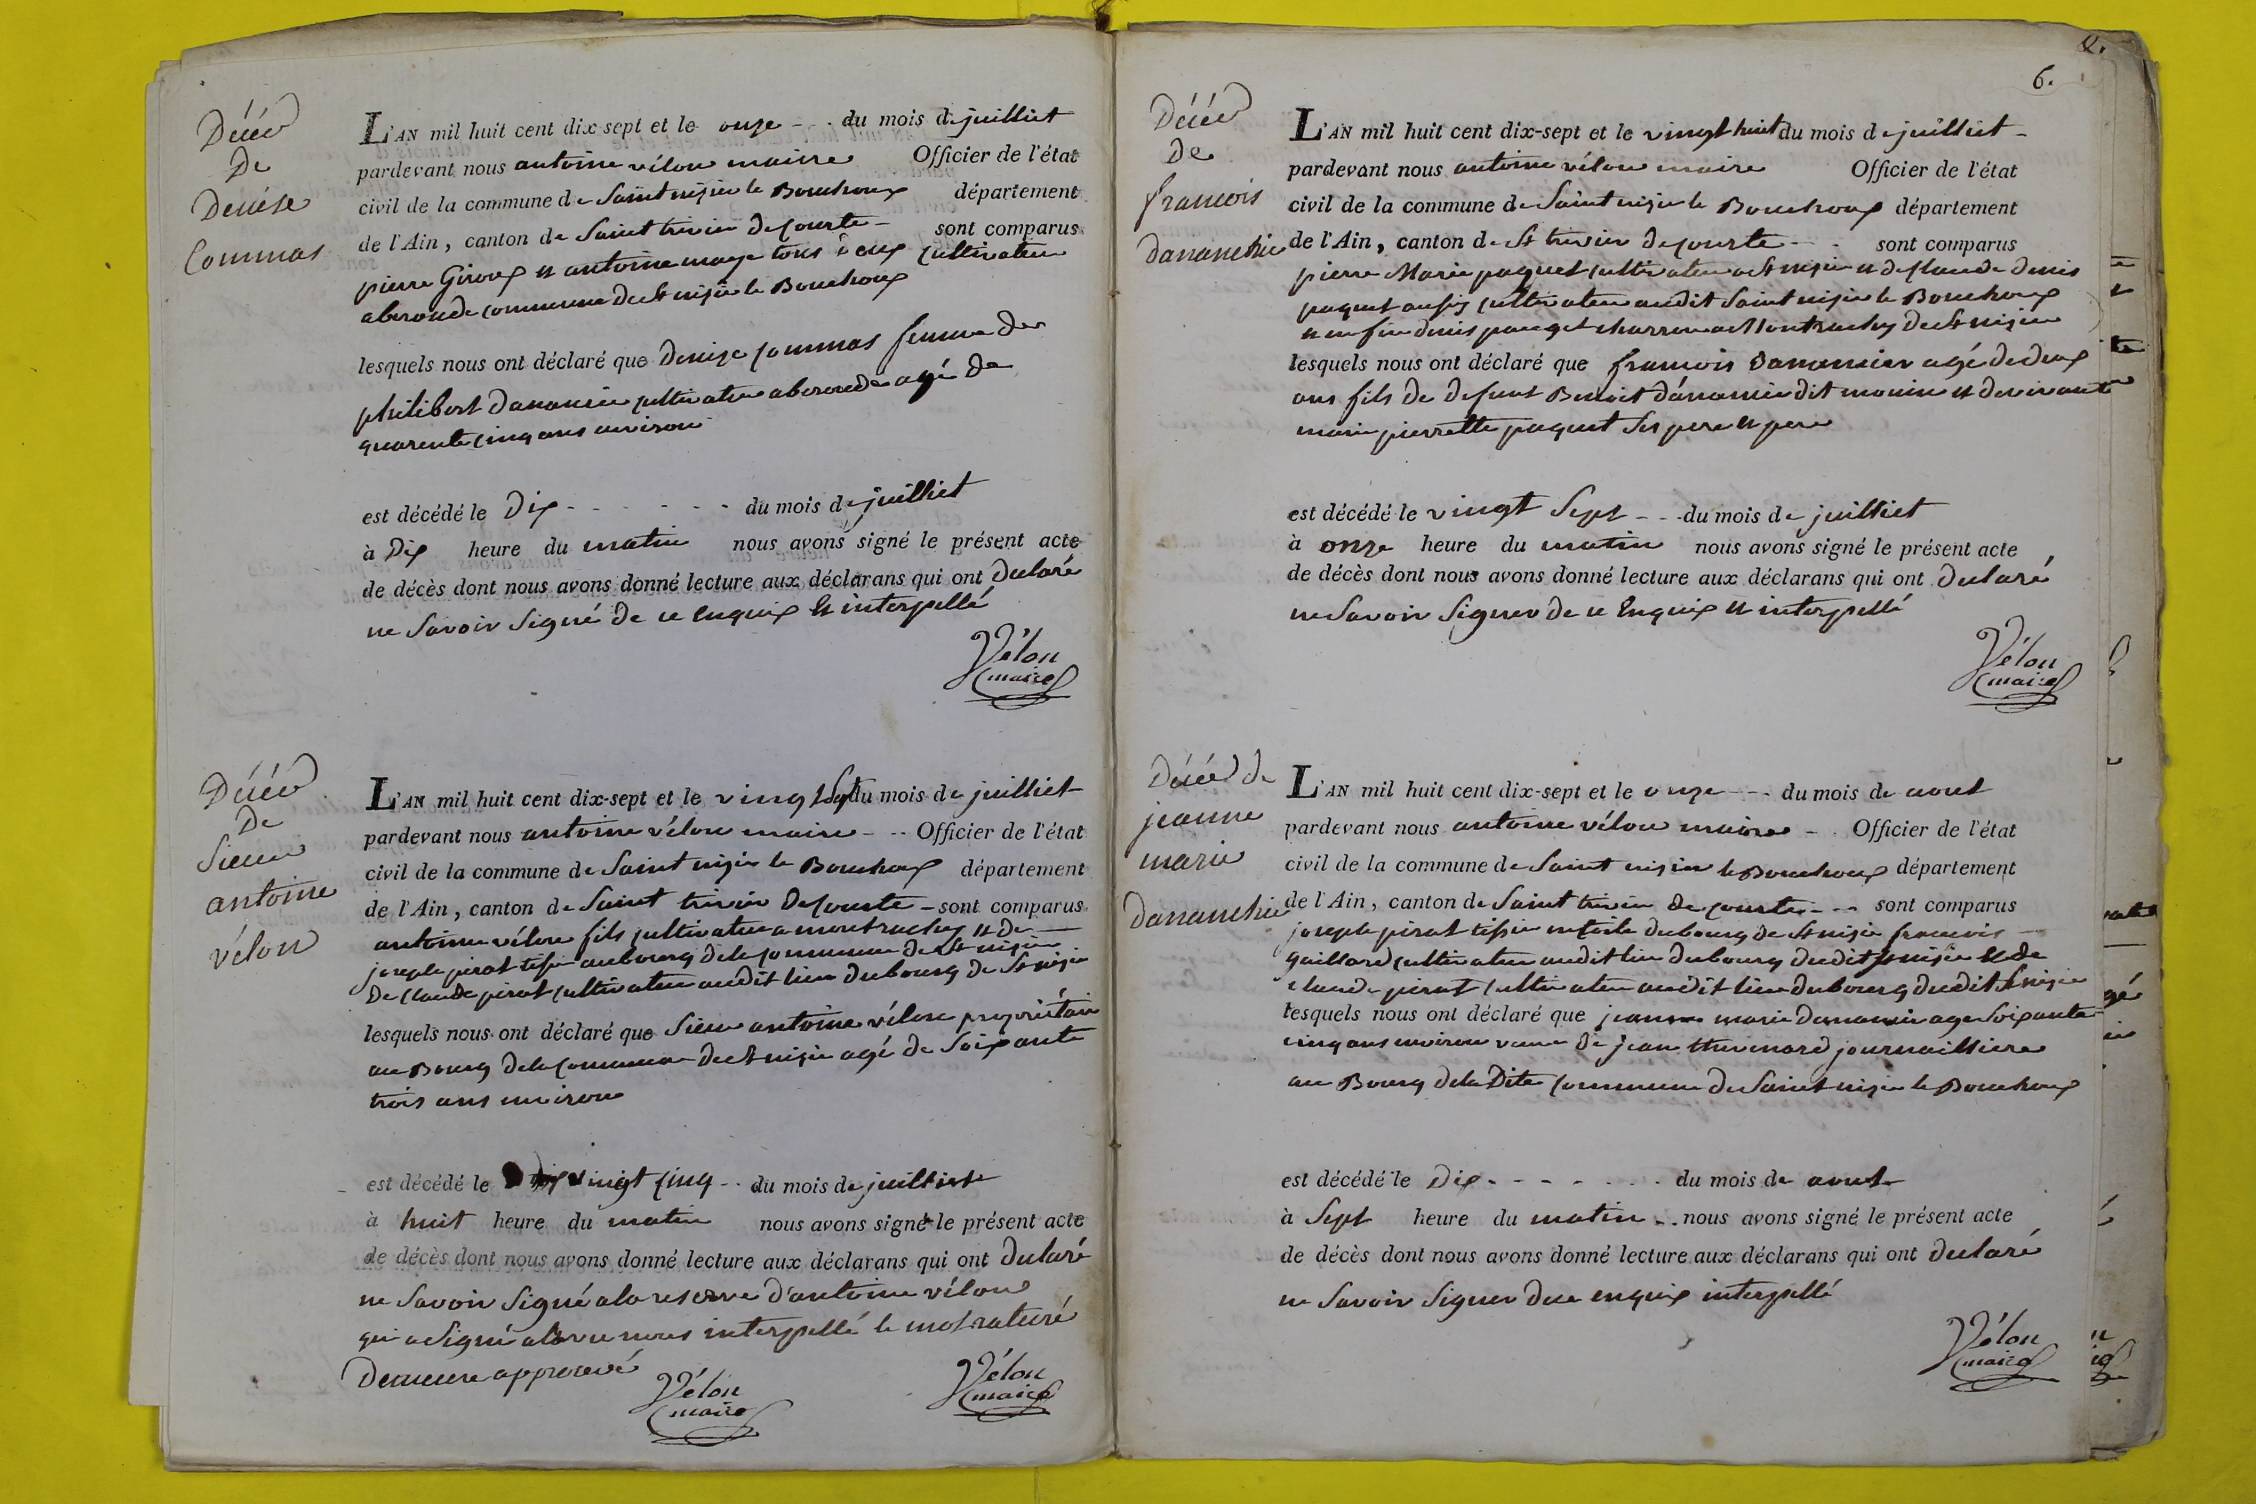 Décéd
De
Denise
Commas
L'AN mil huit cent dix-sept et le onze - - . du mois de juilliet
pardevant nous antoine vélon maire Officier de l'état
civil de la commune de Saint nizier le Bouchoux département
de l'Ain, canton de Saint trivier de courte - sont comparus
pierre Giroux et antoine maye tous deux cultivateur
commune de St nizier le Bouchoux
lesquels nous ont déclaré que Denize commas femme de
philibert Danancier cultivateur agé de
quarente cinq ans environ
est décédé le Dix - - - - - - du mois de juilliet
à Dix heure du matin nous avons signé le présent acte
de décès dont nous avons donné lecture aux déclarans qui ont declaré
ne Savoir Signé de ce enquix et interpellé
Vélon
maire
Décéd
De
Sieur
antoine
vélon
L'AN mil huit cent dix-sept et le vingt sept du mois de juilliet
pardevant nous antoine vélon maire - - - Officier de l'état
civil de la commune de Saint nizier le Bouchoux département
de l'Ain, canton de Saint trivier de courte - sont comparus
antoine vélon fils cultivateur a montrachy et de
joseph pirat tissier au bourg de la commune de St nizier
De claude pirat cultivateur audit lieu du bourg de St nizier
lesquels nous ont déclaré que Sieur antoine vélon propriétaire
au Bourg de la commune de St nizier agé de Soixante
trois ans environ
est décédé le vingt cinq - - du mois de juilliet
à huit heure du matin nous avons signé le présent acte
de décès dont nous avons donné lecture aux déclarans qui ont declaré
ne Savoir Signé a la reserve d'antoine vélon
qui a Signé avec nous interpellé le mot raturé
Demeure approuvé
Vélon
maire
Vélon
maire
6.
Décéd
de
francois
dananchie
L'AN mil huit cent dix-sept et le vingt huit du mois de juilliet -
pardevant nous antoine vélon maire Officier de l'état
civil de la commune de Saint nizier le Bouchoux département
de l'Ain, canton de St trivier de courte - - . sont comparus
pierre Marie paquet cultivateur a St nizier et de claude denis
paquet aussy cultivateur audit Saint nizier le Bouchoux
et enfin denis pauget charron a Montrachy de St nizier
lesquels nous ont déclaré que francois Danancier agé de deux
ans fils de defunt Benoit danancier dit monin et de vivante
marie pierrette paquet Ses pere et pere
est décédé le vingt Sept - - . du mois de juilliet
à onze heure du matin nous avons signé le présent acte
de décès dont nous avons donné lecture aux déclarans qui ont declaré
ne Savoir Signer de ce Enquix et interpellé
Vélon
maire
Décéd de
jeanne
marie
dananchie
L'AN mil huit cent dix-sept et le onze - - - du mois de aout
pardevant nous antoine vélon maire - . Officier de l'état
civil de la commune de Saint nizier le Bouchoux département
de l'Ain, canton de Saint trivier de courte - - - sont comparus
joseph pirat tissier en toile du bourg de St nizier francois
gaillard cultivateur audit lieu du bourg dudit St nizier et de
claude pirat cultivateur audit lieu du bourg dudit St nizier
lesquels nous ont déclaré que jeanne marie Danancier age Soixante
cinq ans environ veuve de jean thevenard journailliere
au Bourg de la Dite commune de Saint nizier le Bouchoux
est décédé le Dix - - - - - . . du mois de aout
à Sept heure du matin - . . nous avons signé le présent acte
de décès dont nous avons donné lecture aux déclarans qui ont declaré
ne Savoir Signer de ce enquix interpellé
Vélon
maire